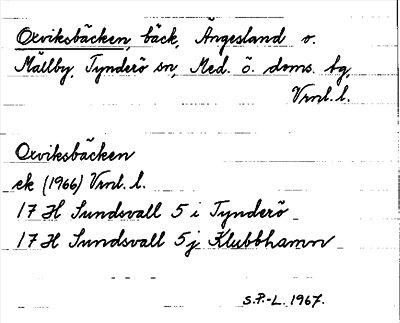 Oxviksbäcken, bäck, Ängesland o.
Mällby, Tynderö sn, Med. ö. doms. tg,
Vrnl. l.
Oxviksbäcken
ek (1966) Vrnl. l.
17 H Sundsvall 5 i Tynderö
17 H Sundsvall 5 j Klubbhamn
S.P.-L. 1967.